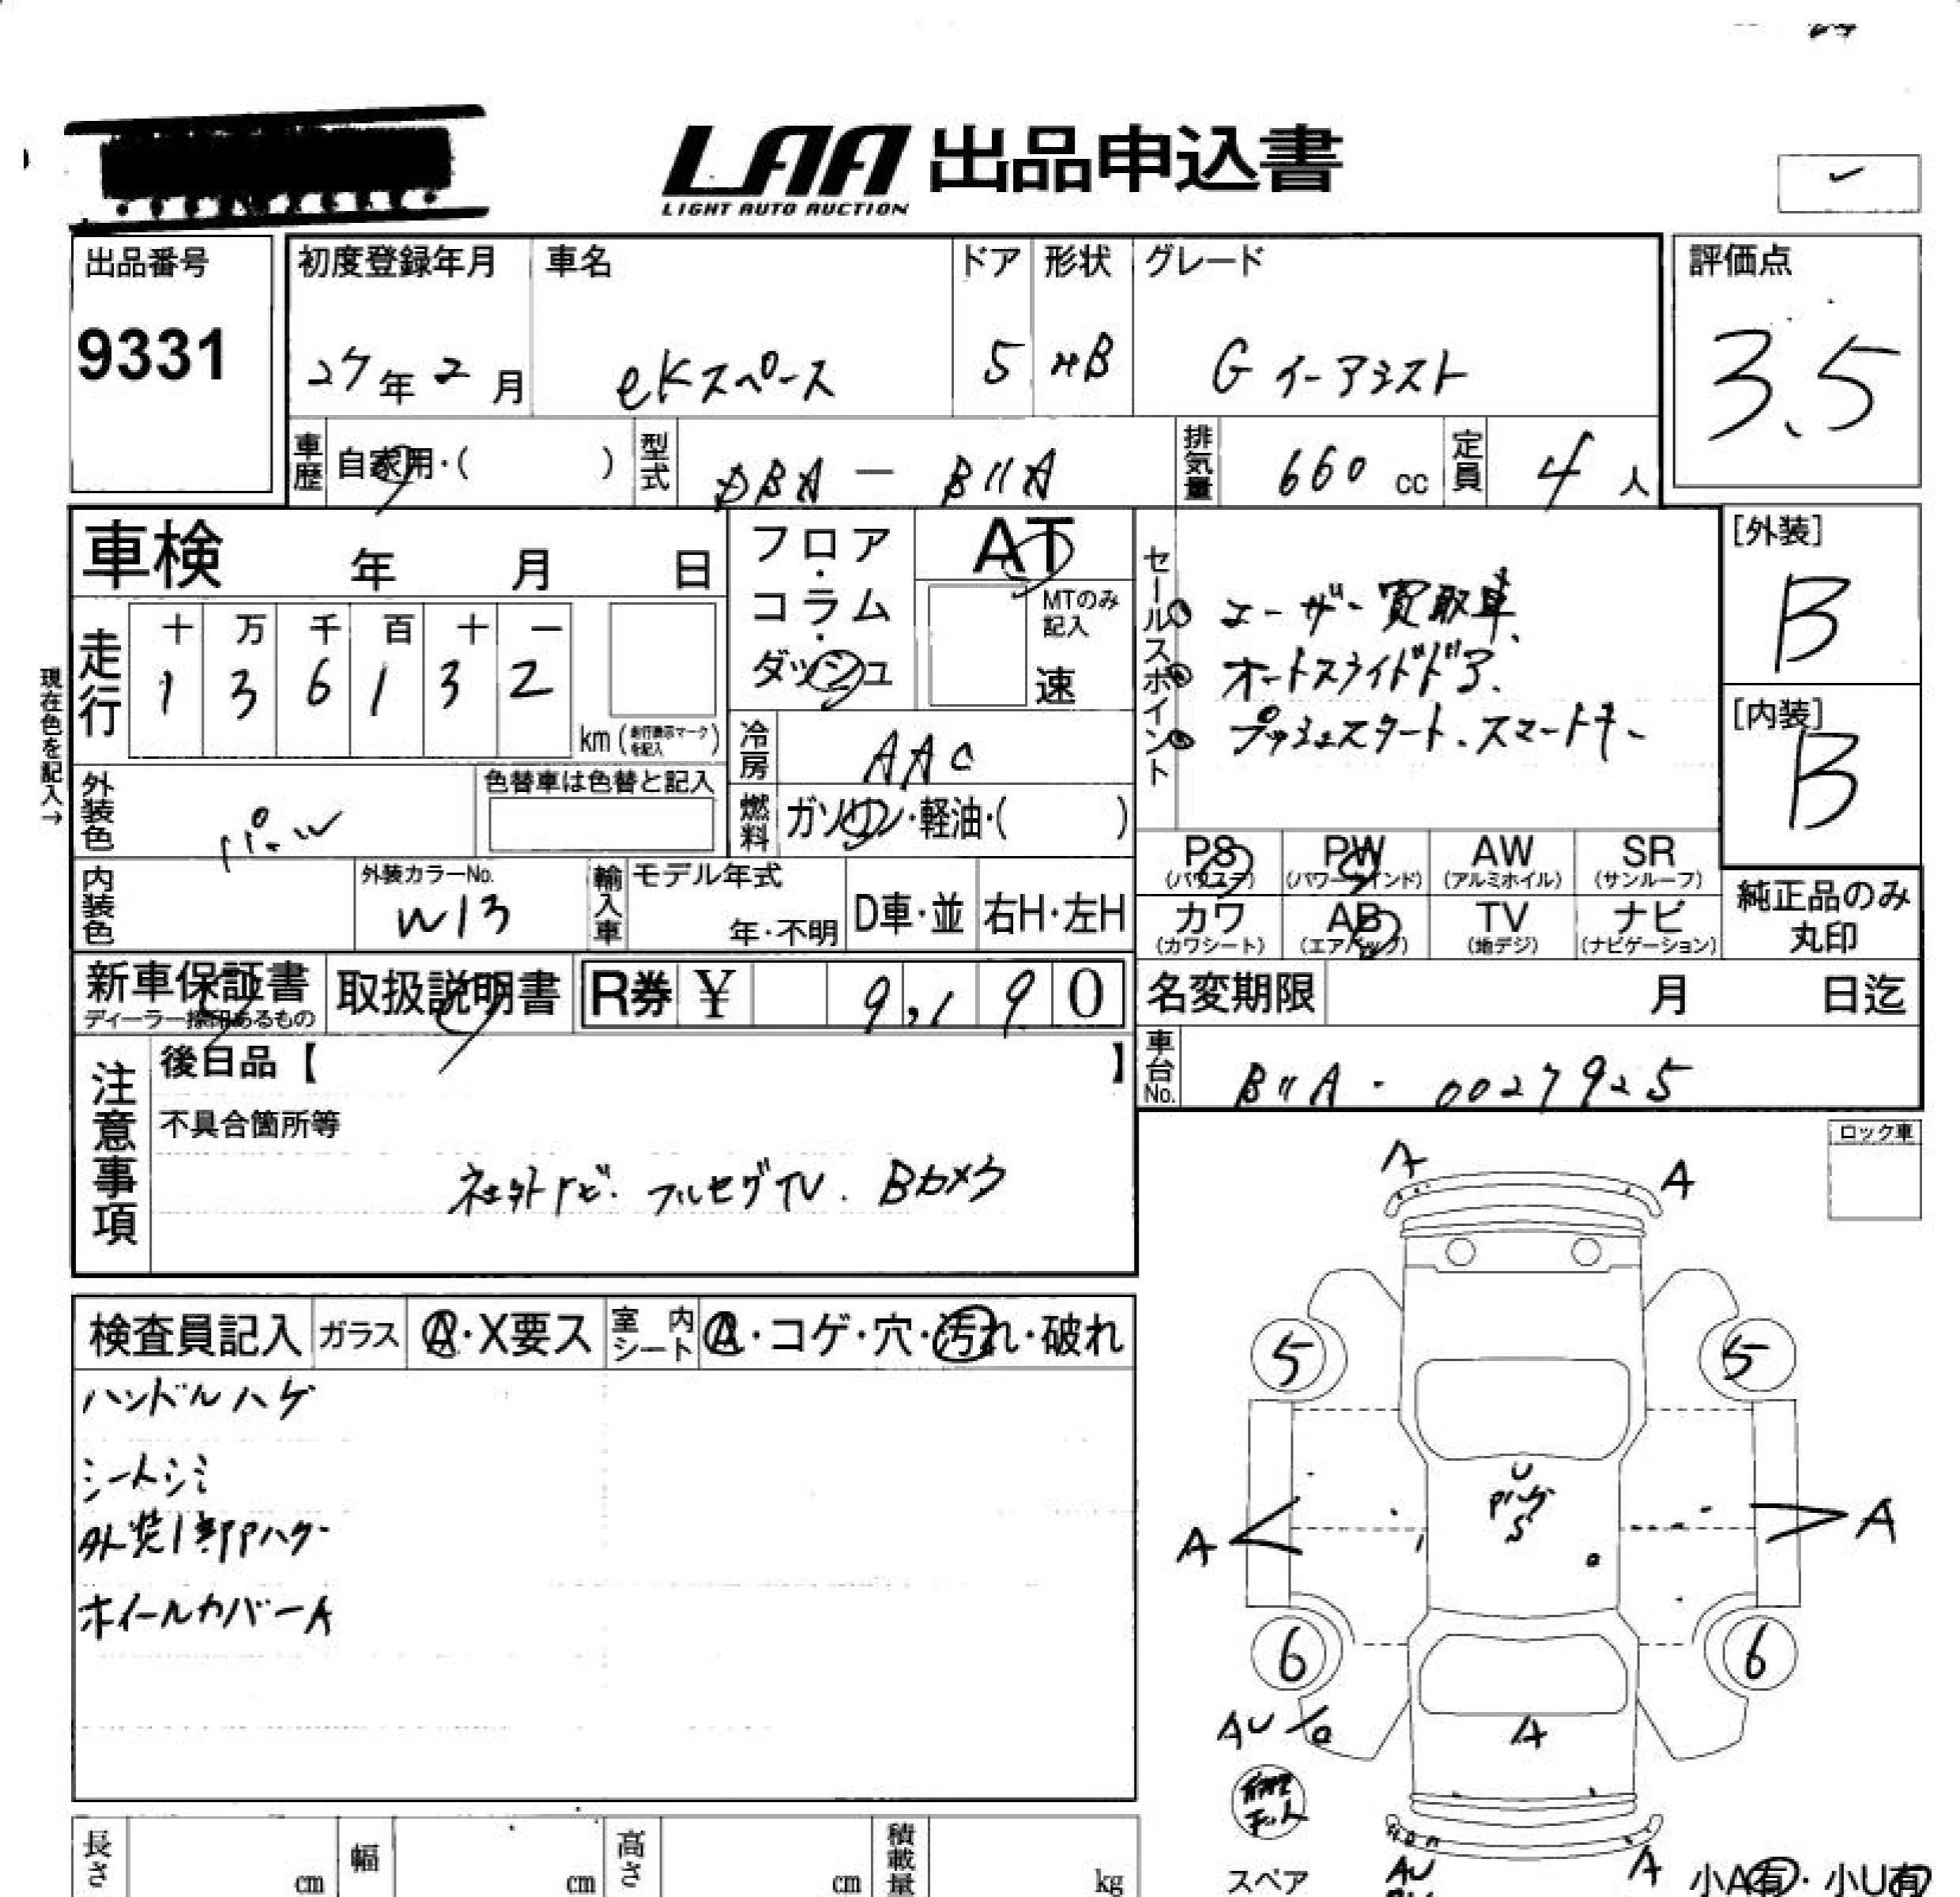 LAA 出品申込書
LIGHT AUTO AUCTION
出品番号
9331
初度登録年月
27年2月
車名
eKスペース
ドア
5
形状
HB
グレード
G イーアシスト
評価点
3.5
車歴
自家用・( )
型式
DBA - B11A
排気量
660 cc
定員
4 人
車検 年 月 日
フロア・コラム・ダッシュ
AT
MTのみ記入
速
セールスポイント
ユーザー買取車
オートスライドドア
プッシュスタート、スマートキー
[外装]
B
[内装]
B
現在色を記入→
走行
十 万 千 百 十 一
1 3 6 1 3 2
km (走行表示マークを記入)
冷房
AAC
外装色
パール
色替車は色替と記入
燃料
ガソリン・軽油・( )
内装色
外装カラーNo.
W13
輸入車
モデル年式
年・不明
D車・並
右H・左H
PS
(パワステ)
PW
(パワーウインド)
AW
(アルミホイル)
SR
(サンルーフ)
カワ
(カワシート)
AB
(エアバッグ)
TV
(地デジ)
ナビ
(ナビゲーション)
純正品のみ
丸印
新車保証書
ディーラー捺印あるもの
取扱説明書
R券 ¥ 9,190
名変期限 月 日迄
車台No.
B11A - 0027925
注意事項
後日品【 】
不具合箇所等
社外ナビ・フルセグTV. Bカメラ
ロック車
検査員記入
ガラス
A・X要ス
室内シート
A・コゲ・穴・汚れ・破れ
ハンドルハゲ
シートシミ
外装1部Pハゲ
ホイールカバーA
A
A
5
5
U
Pハゲ
S
A
A
6
6
AU
A
長さ cm
幅 cm
高さ cm
積載量 kg
スペア
AU
A
小A有・小U有